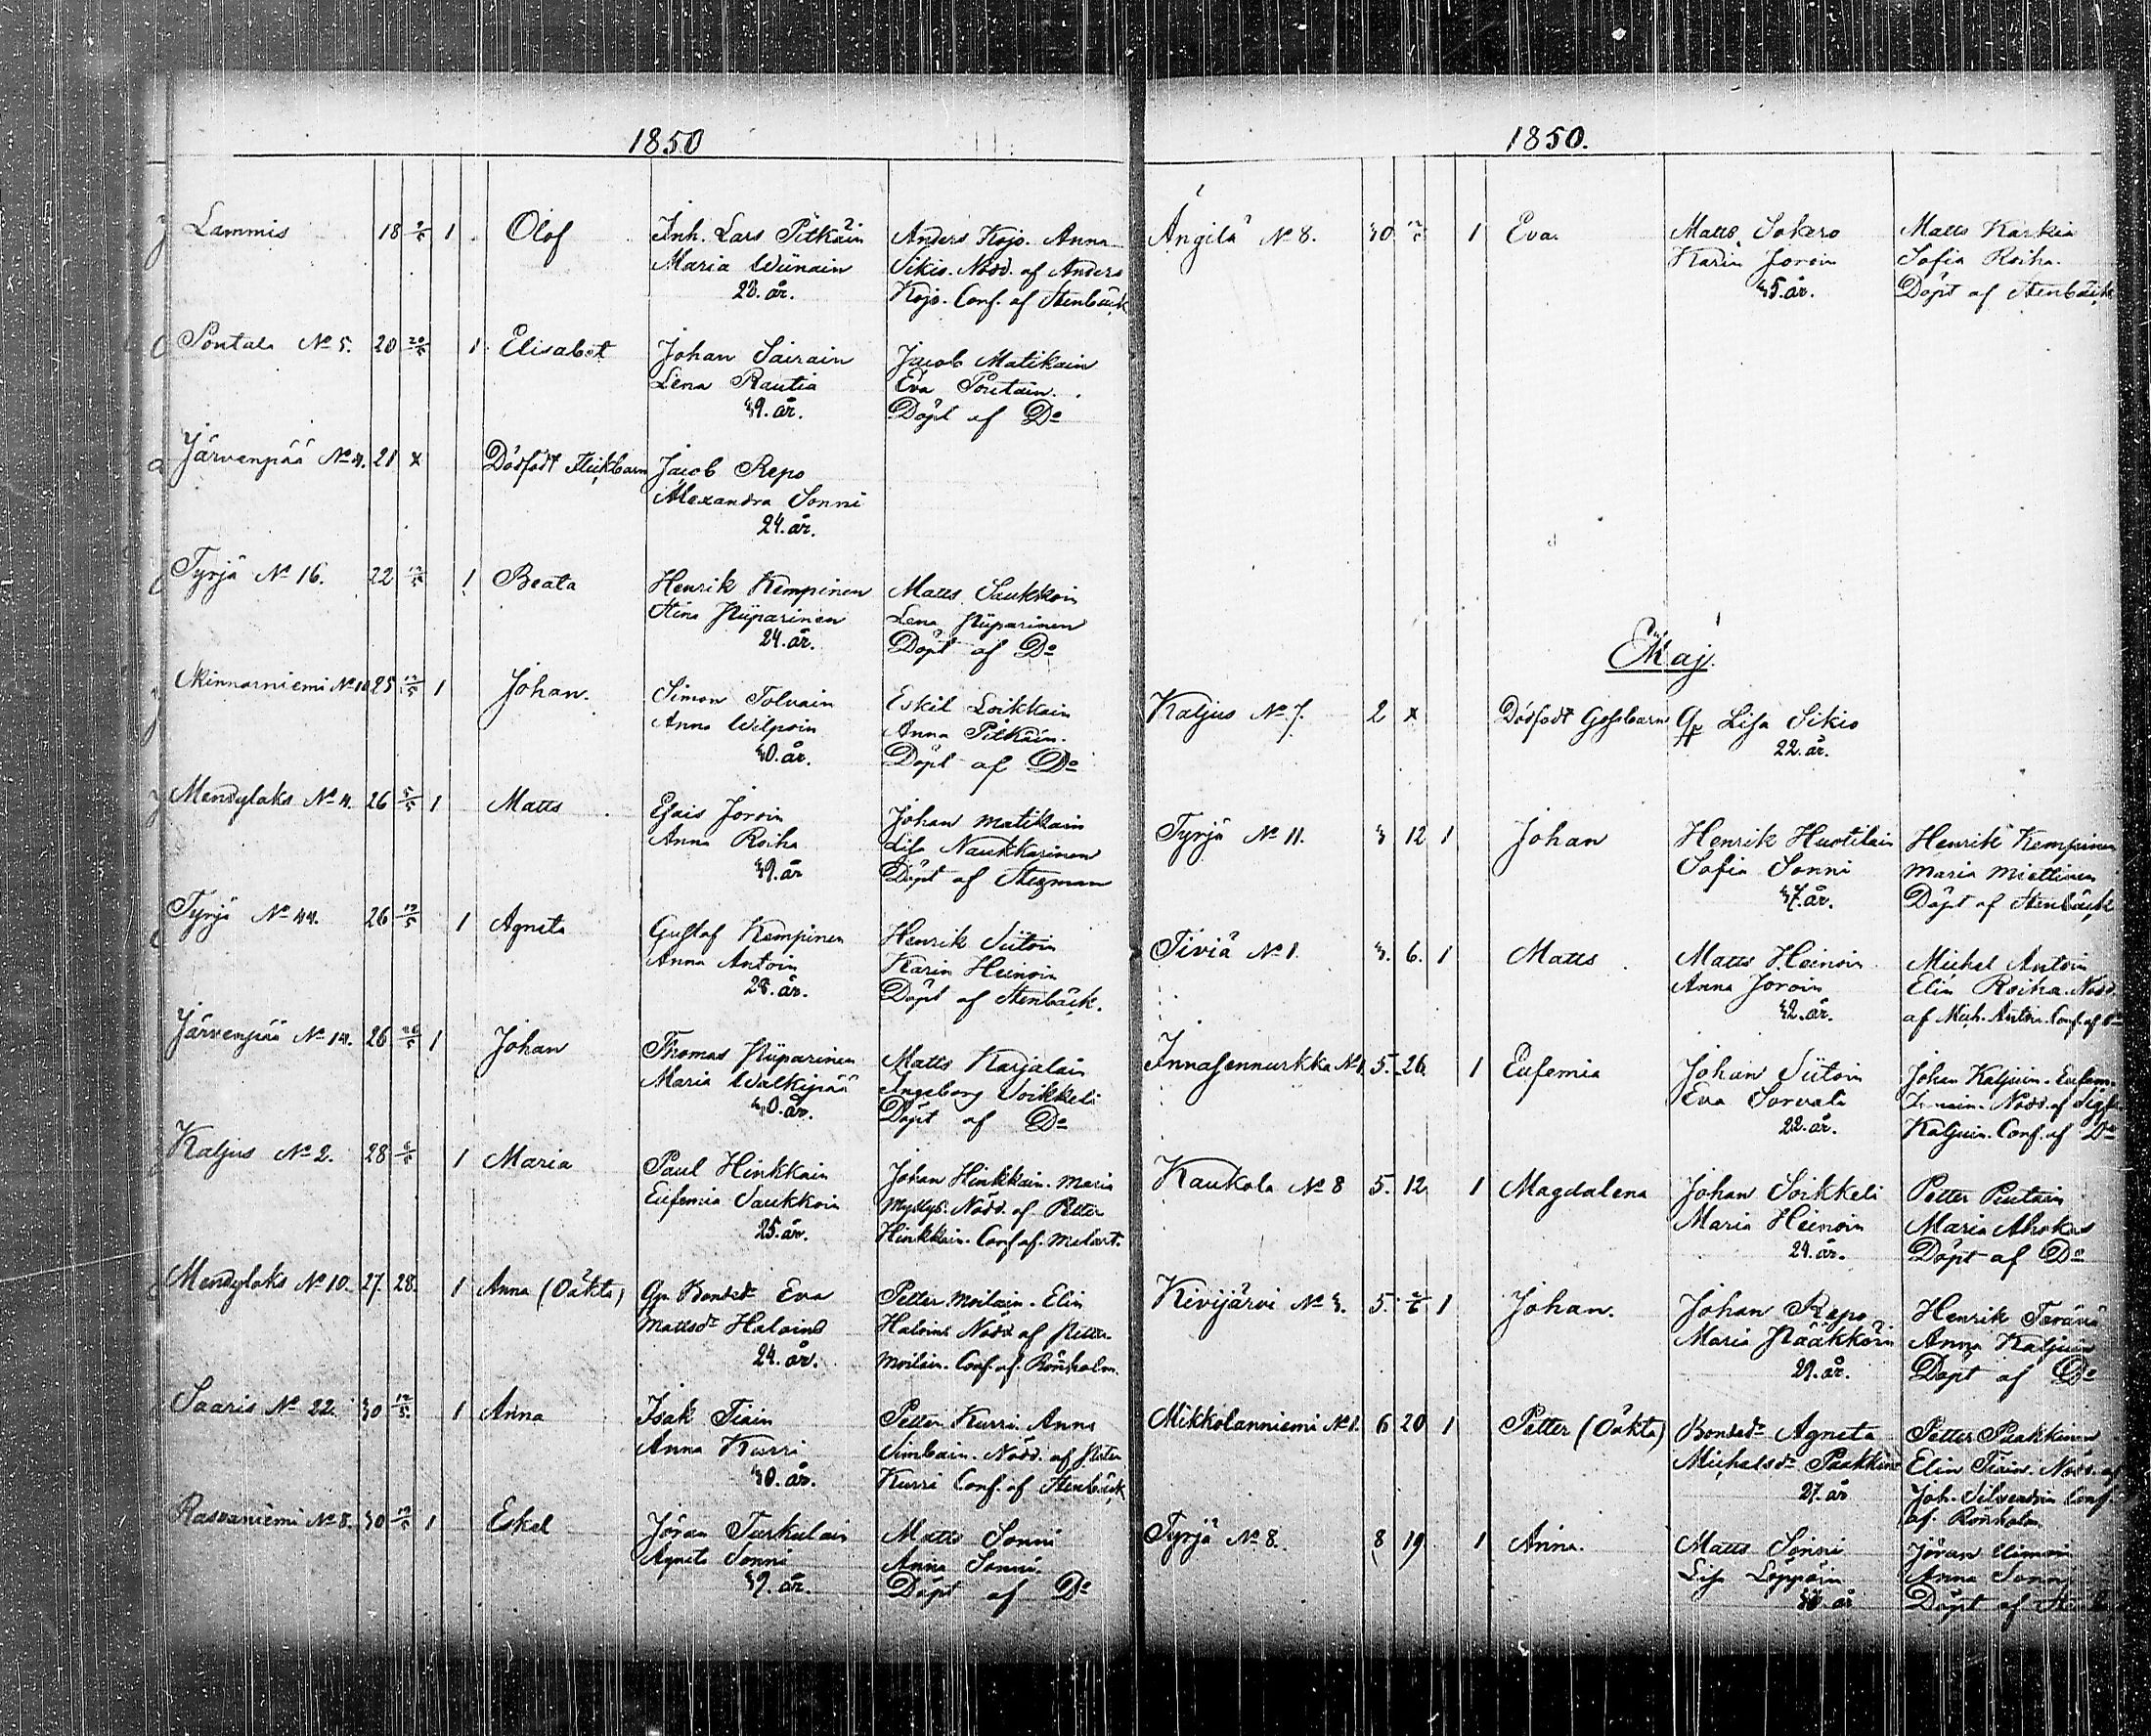 1850
Lammis 18 9/5 1 Olof Inh. Lars Pitkäin Anders Kojo. Anna
Maria Wiinain Sikio. Nödd. af Anders
28. år. Kojo. Conf. af Stenbäck
Pontala No 5. 20 20/5 1 Elisabet Johan Sairain Jacob Matikain
Lena Rautia Eva Poutain.
39. år. Döpt af Do
Järvenpää No 4. 21 x Dödfödt Flickbarn Jacob Repo
Alexandra Sonni
24. år.
Tyrjä No 16. 22 12/5 1 Beata Henrik Kempinen Matts Saukkoin
Stina Hüparinen Lena Hüparinen
24. år. Döpt af Do
Kinnarniemi No 10 25 12/5 1 Johan. Simon Tolvain Eskil Loikkain
Anna Wilpoin Anna Pitkäin.
30. år. Döpt af Do
Mendylaks No 4. 26 5/5 1 Matts Esais Joroin Johan Matikain
Anna Roiha Lisa Naukkarinen
39. år Döpt af Stegman
Tyrjä No 44. 26 12/5 1 Agneta Gustaf Kempinen Henrik Siitoin
Anna Antoin Karin Heinoin
28. år. Döpt af Stenbäck.
Järvenpää No 14. 26 26/5 1 Johan Thomas Hüparinen Matts Karjalain
Maria Walkipää Ingeborg Soikkeli
40. år. Döpt af Do
Kaljus No 2. 28 6/5 1 Maria Paul Hinkkain Johan Hinkkain. Maria
Eufemia Saukkoin Myllys. Nödd. af Petter
25. år. Hinkkain. Conf. af. Melart.
Mendylaks No 10. 27. 28. 1 Anna (Oäkta) Qp. Bondedr Eva Petter Moilain. Elin
Mattsdr Haloins Haloins Nödd af Petter
24. år. Moilain. Conf. af. Rönholm.
Saaris No 22. 30 12/5. 1 Anna Isak Tiain Petter Kurri. Anna
Anna Kurri Simbain. Nödd. af Petter
30. år. Kurri Conf. af Stenbäck
Rasvaniemi No 8. 30 12/5 1 Eskel Jöran Turkulain Matts Sonni
Agneta Sonni Anna Sonni.
39. år. Döpt af Do
1850.
Ängilä No 8. 30 12/5 1 Eva. Matts Sokero Matts Karkia
Karin Joroin Sofia Roiha.
35. år. Döpt af Stenbäck
Maj.
Kaljus No 7. 2 x Dödfödt Gossbarn Qp Lisa Sikio
22. år.
Tyrjä No 11. 3 12 1 Johan Henrik Huotilain Henrik Kempinen
Sofia Sonni Maria Miettinen
37. år. Döpt af Stenbäck
Tiviä No 1. 3. 6. 1 Matts Matts Heinoin Michel Antoin
Anna Joroin Elin Roiha. Nödd.
32. år. af Mich. Antoin. Conf. af Do
Innasennurkka No 1. 5. 26. 1 Eufemia Johan Siitoin Johan Kaljuin. Eufem.
Eva Sorvali Nödd. af
22. år. Kaljuin. Conf. af Do
Kaukola No 8 5. 12 1 Magdalena Johan Soikkeli Petter Poutain
Maria Heinoin Maria Ahokas
24. år. Döpt af Do
Kivijärvi No 3. 5. 2/6 1 Johan. Johan Repo Henrik Terävä
Maria Hääkköin Anna Kaljuin
29. år. Döpt af Do
Mikkolanniemi No 1. 6 20 1 Petter (Oäkta) Bondedr Agneta Petter Paakkinen
Michelsdr Paakkine Elin Tiain. Nödd. af
27. år Joh. Silvendoin Conf.
af. Rönholm.
Tyrjä No 8. 8 19 1 Anna. Matts Sonni Jöran
Lisa Loppoin Anna Sonni
år Döpt af